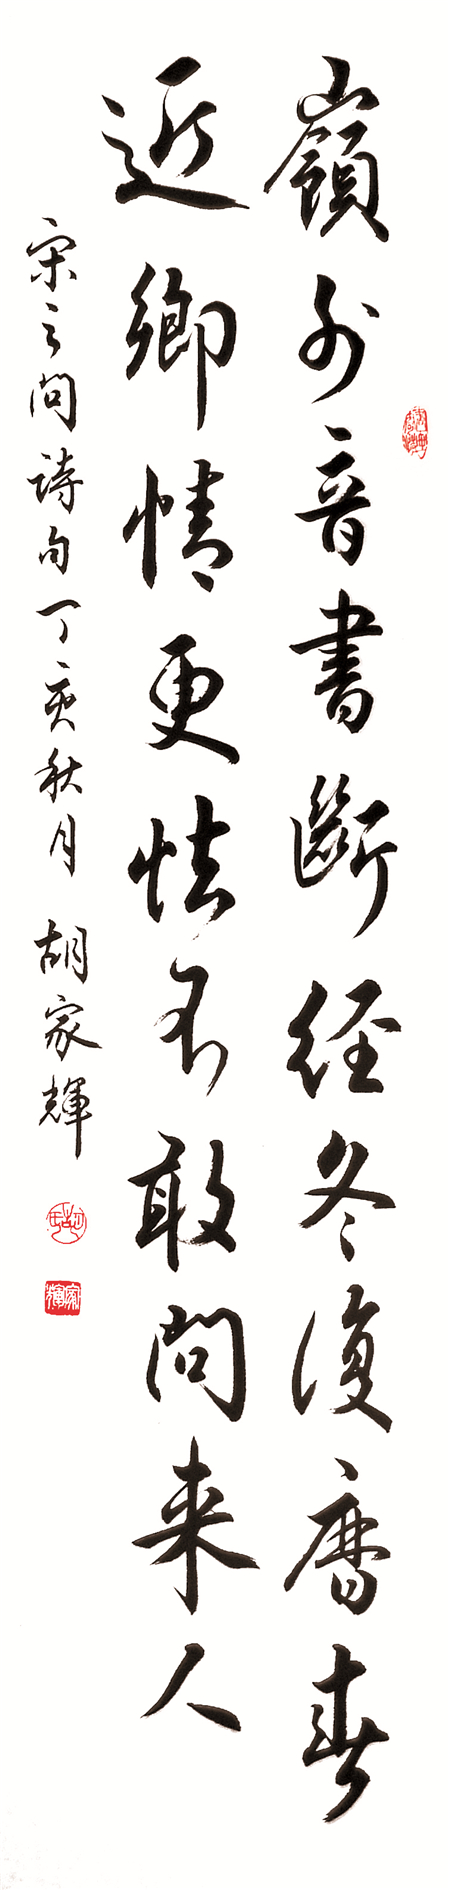 嶺外音書斷経冬復曆春
近鄉情更怯不敢問来人
宋之問詩句丁亥秋月 胡家輝